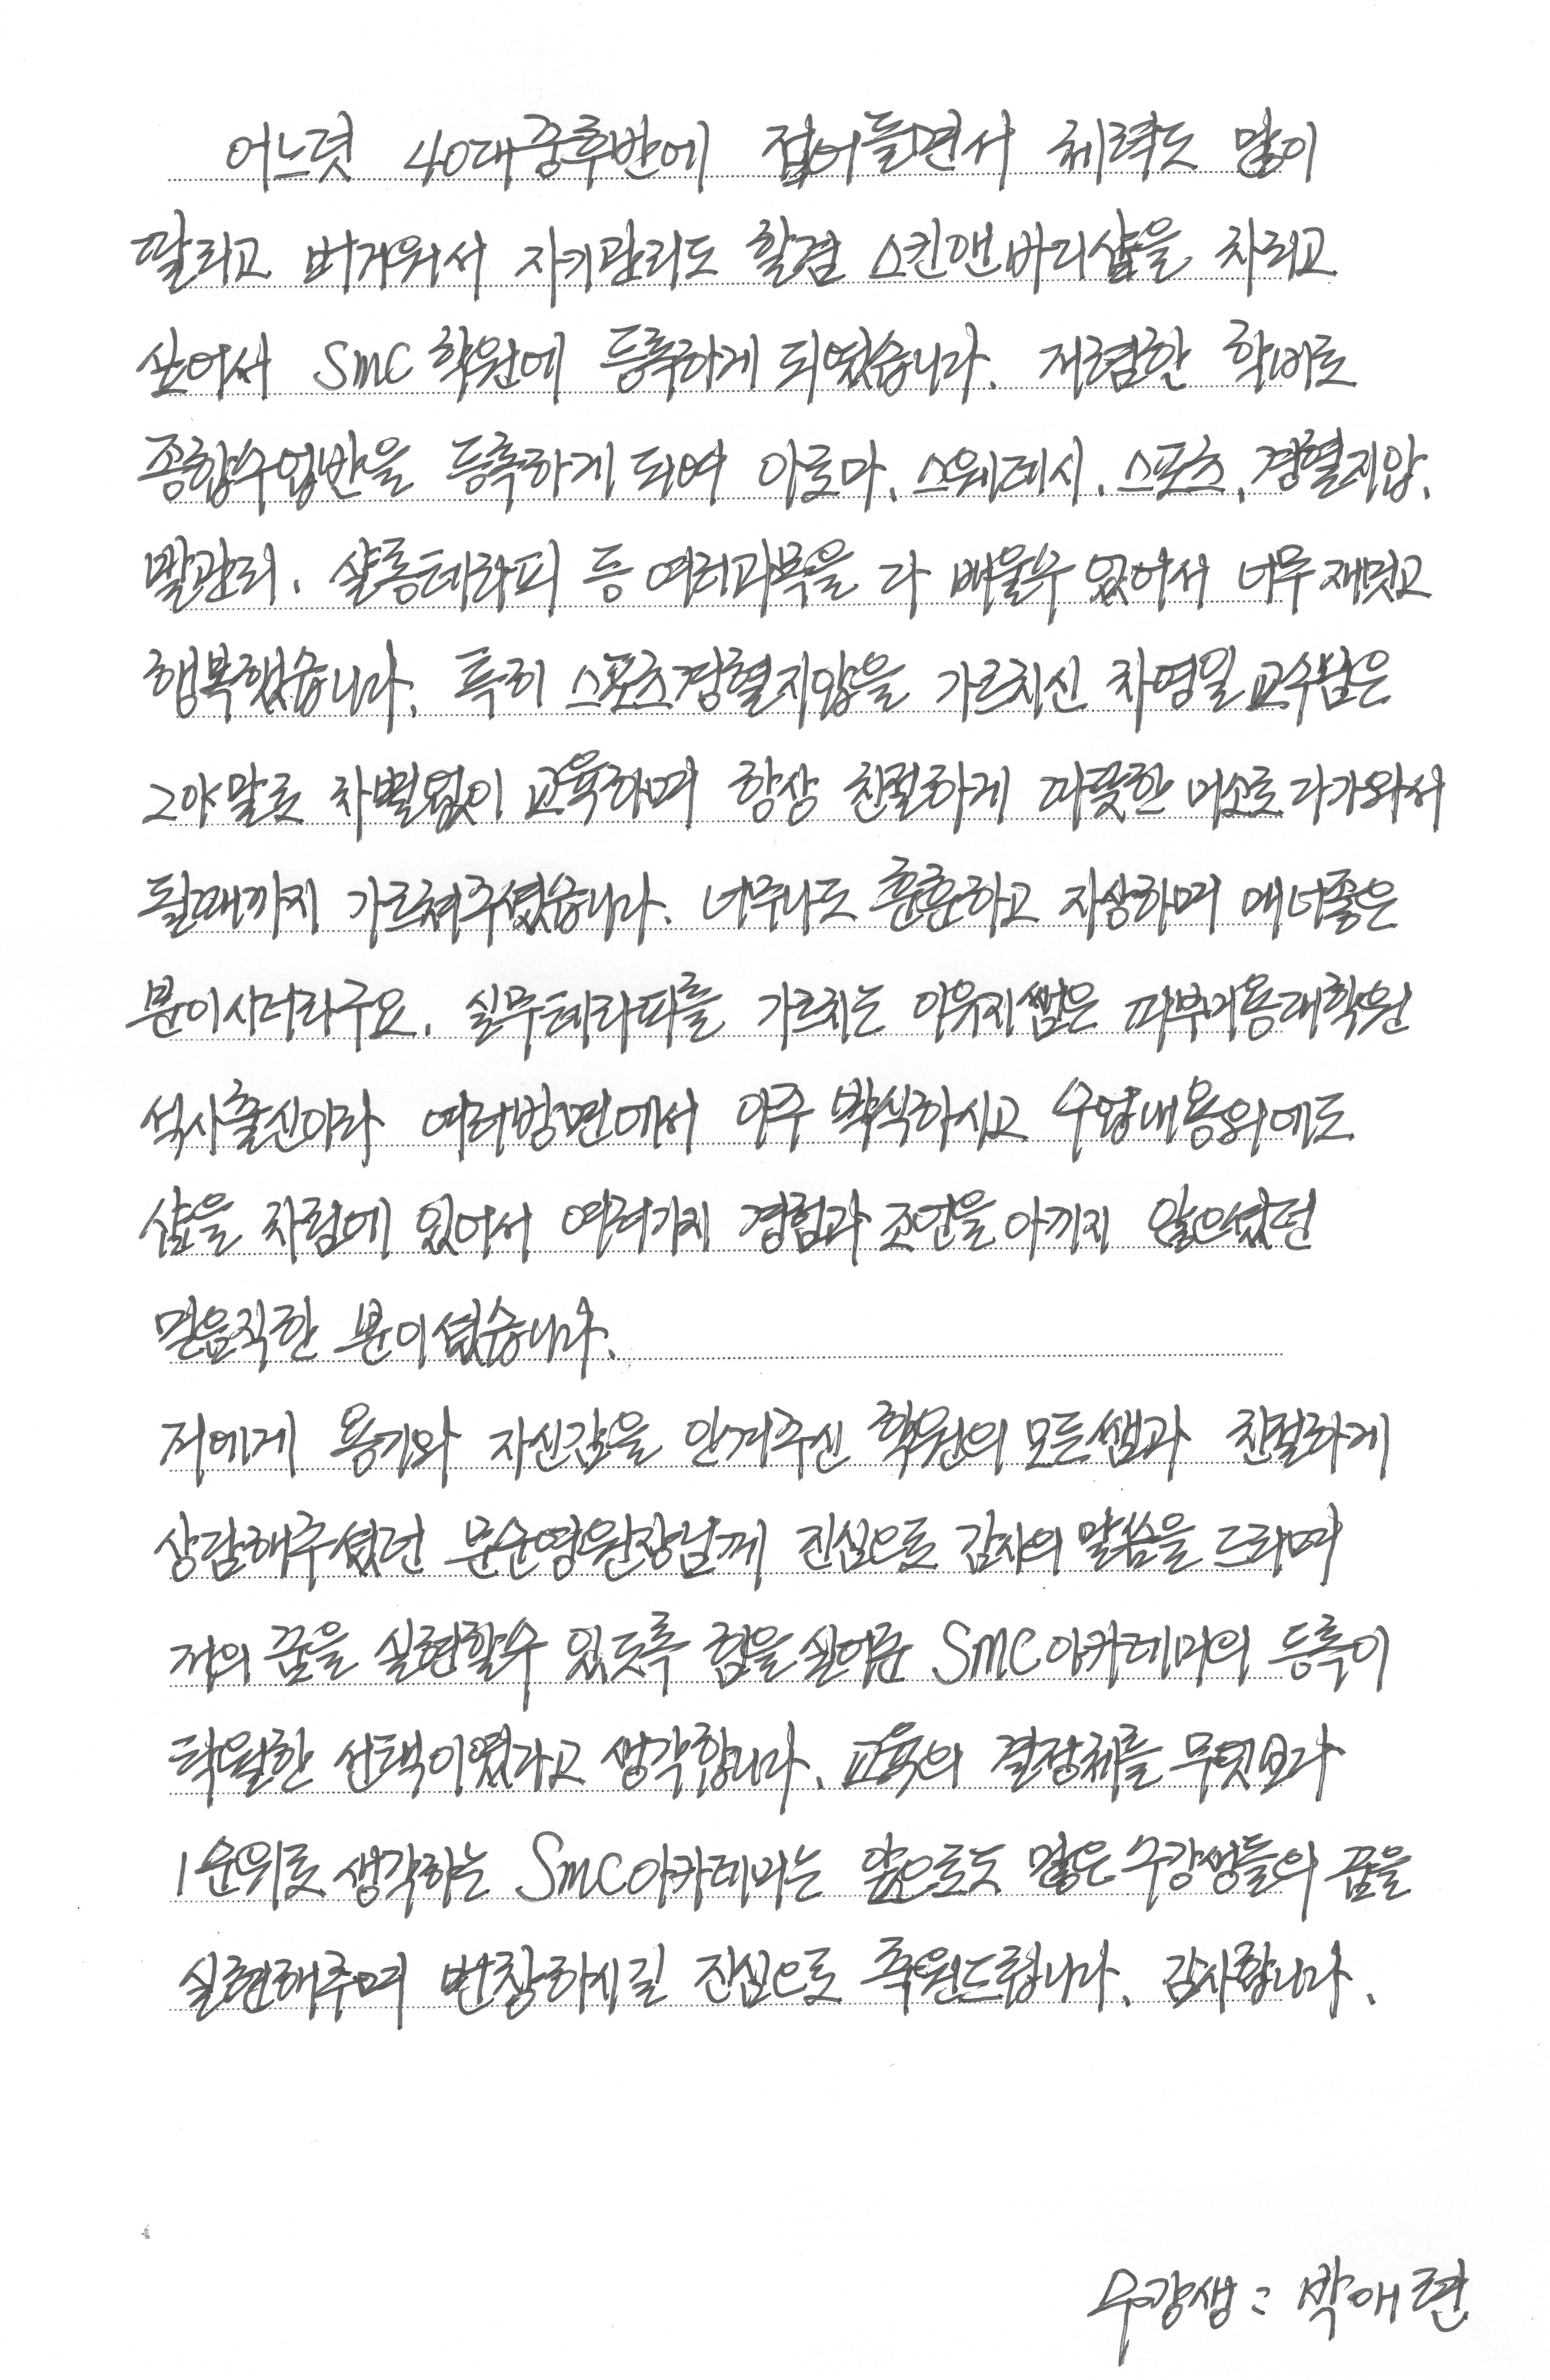 어느덧 40대중후반에 접어들면서 체력도 많이
딸리고 버거워서 자기관리도 할겸 스킨앤바디샵을 차리고
싶어서 SMC 학원에 등록하게 되였습니다. 저렴한 학비로
종합수업반을 등록하게 되여 아로마, 스웨데시, 스포츠, 경혈지압,
발관리, 살롱테라피 등 여러과목을 다 배울수 있어서 너무 재밋고
행복했습니다. 특히 스포츠경혈지압을 가르치신 차영일교수님은
그야말로 차별없이 교육하며 항상 친절하게 따뜻한 미소로 다가와서
될때까지 가르쳐주셨습니다. 너무나도 훈훈하고 자상하며 매너좋은
분이시더라구요. 실무테라피를 가르치는 이유지쌤은 피부미용대학원
석사출신이라 여러방면에서 아주 박식하시고 수업내용외에도
샵을 차림에 있어서 여러가지 경험과 조언을 아끼지 않으셨던
믿음직한 분이셨습니다.
저에게 용기와 자신감을 안겨주신 학원의 모든쌤과 친절하게
상담해주셨던 문순영원장님께 진심으로 감사의 말씀을 드리며
저의 꿈을 실현할수 있도록 힘을 실어준 SMC아카데미의 등록이
탁월한 선택이였다고 생각합니다. 교육의 결정체를 무엇보다
1순위로 생각하는 SMC아카데미는 앞으로도 많은 수강생들의 꿈을
실현해주며 번창하시길 진심으로 축원드립니다. 감사합니다.
수강생: 박애련